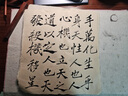 手萬化生乎
身天性人也人
心機也立天之
道以定人也天
發殺機移星